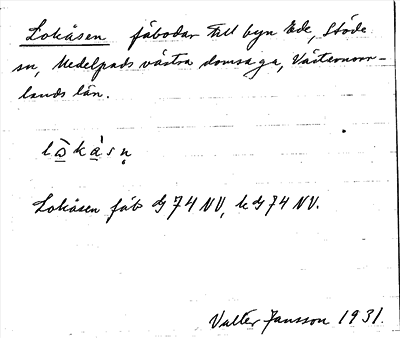 Lokåsen fäbodar till byn Ede, Stöde
sn, Medelpads västra domsaga, Västernorr-
lands län.
lɔ̀kàsn̥
Lokåsen fäb G 74 NV, k G 74 NV.
Valter Jansson 1931.